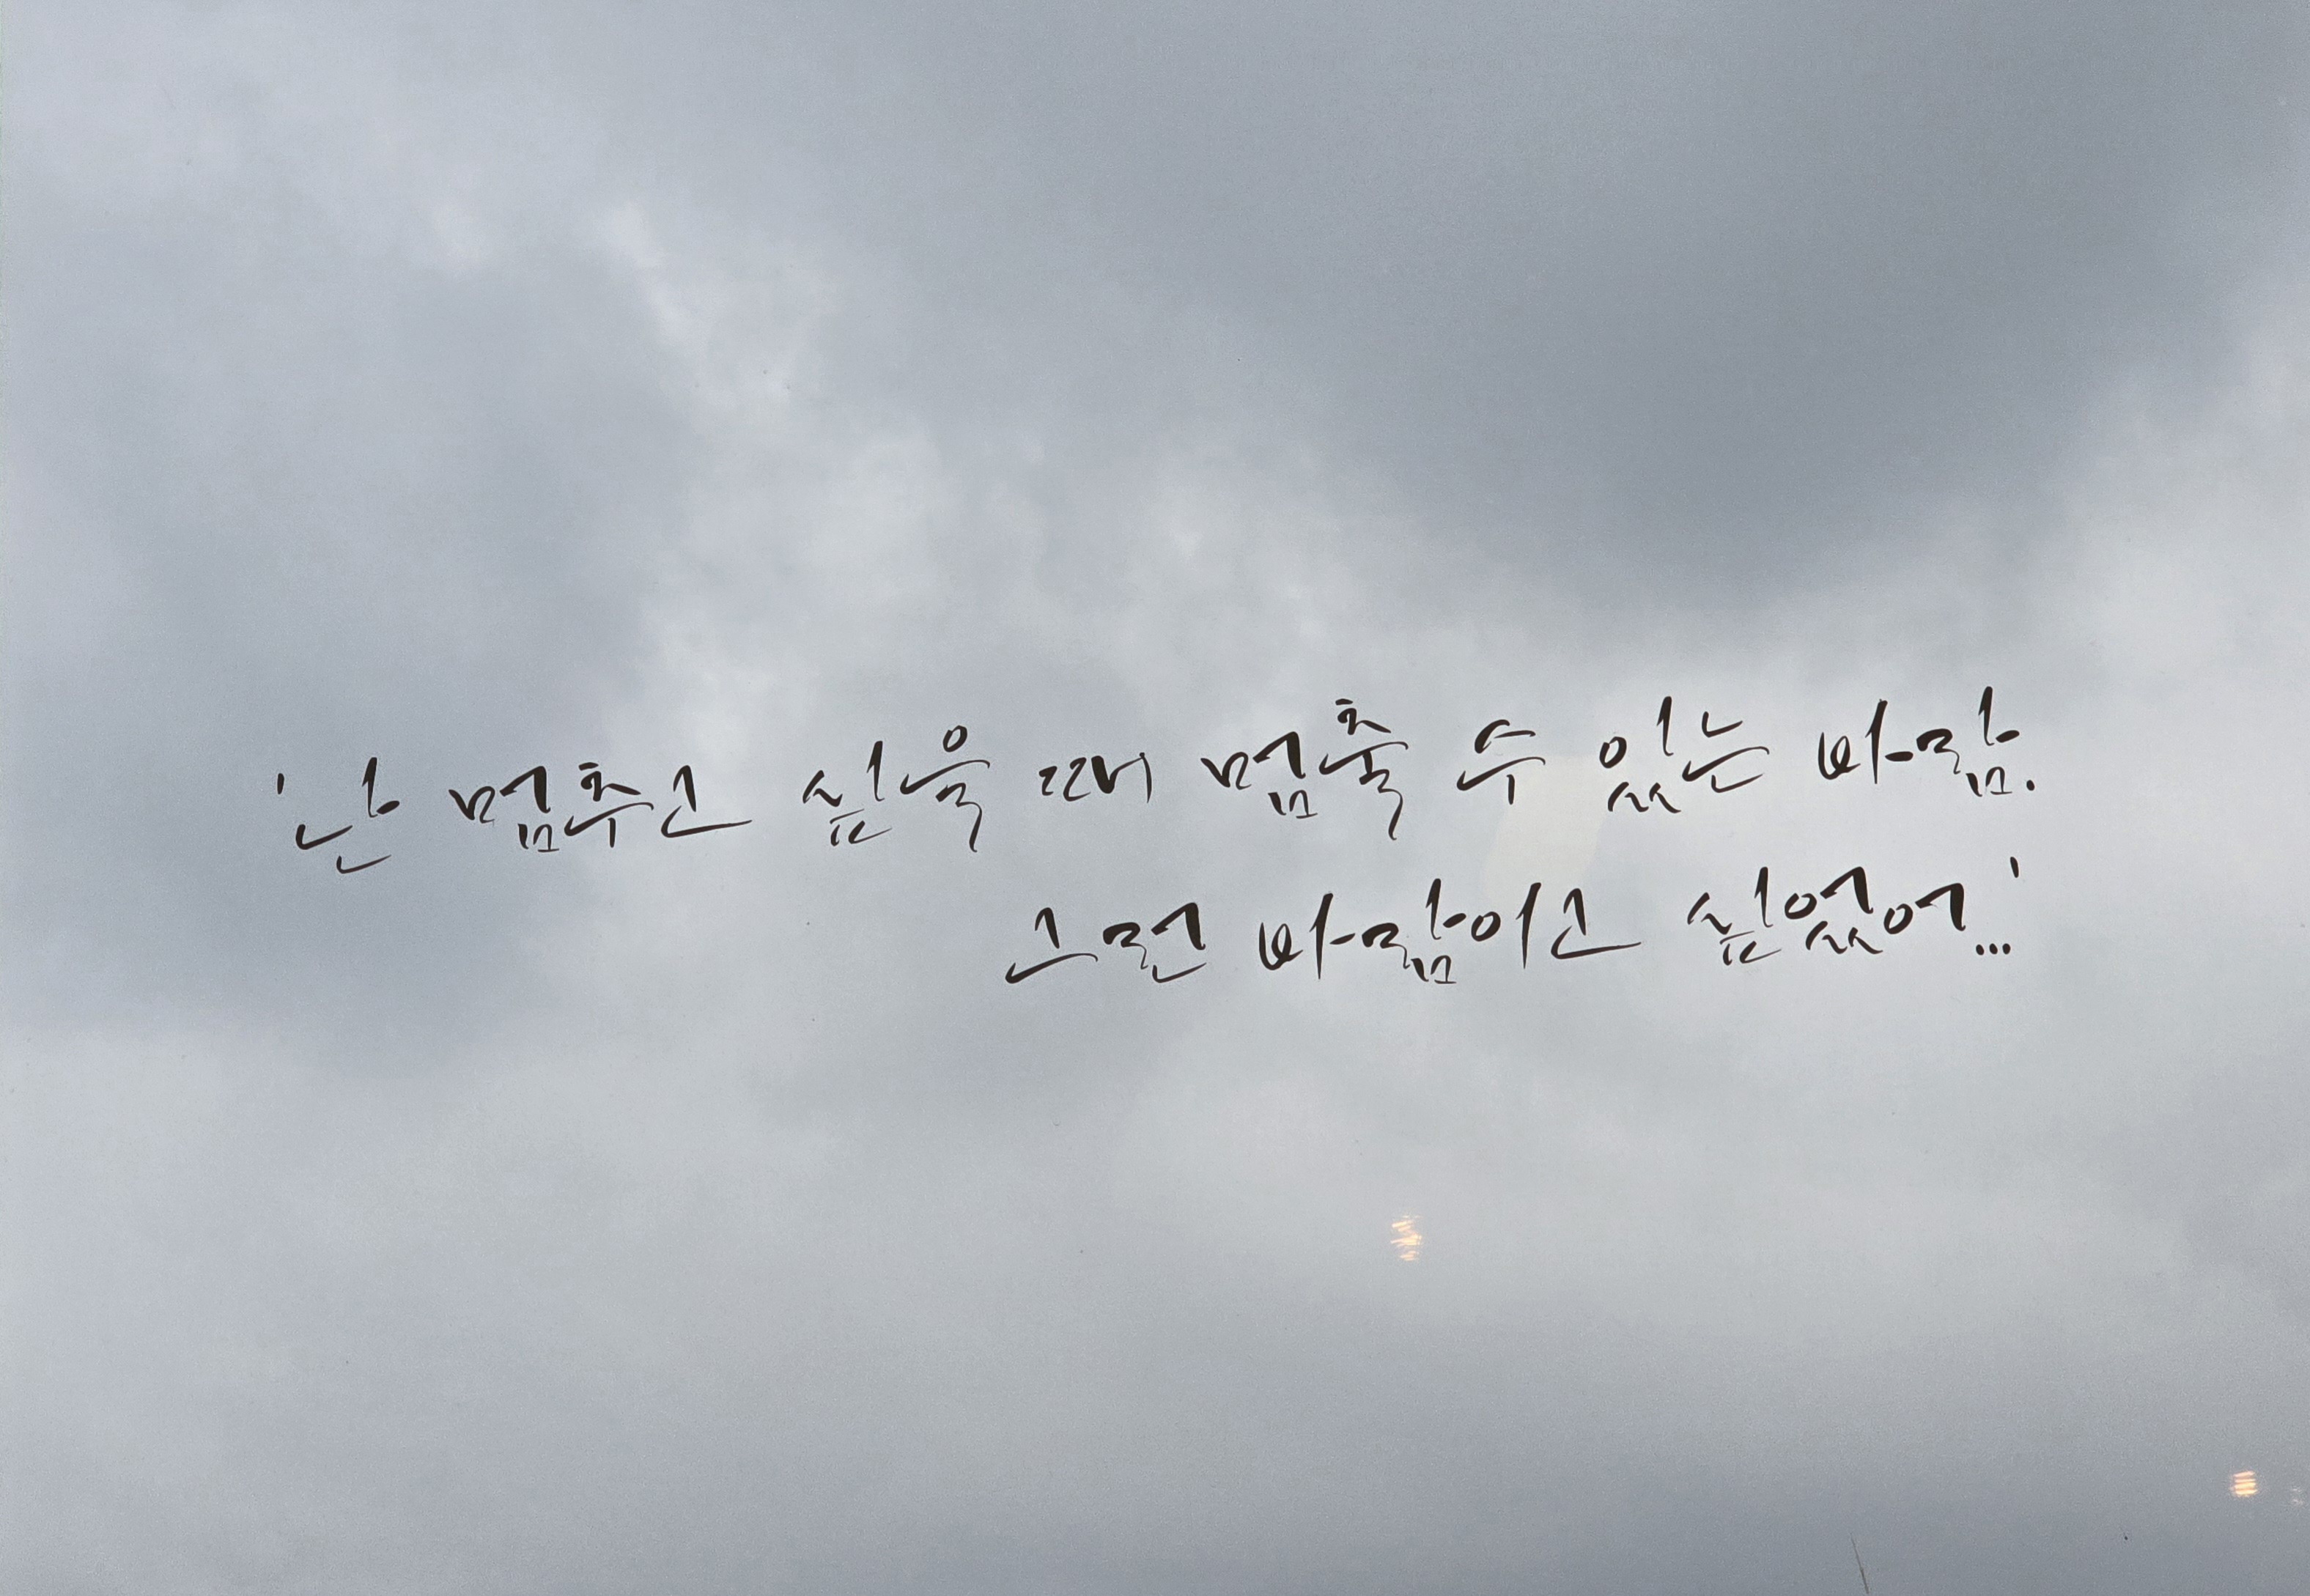 '난 멈추고 싶을 때 멈출 수 있는 바람.
그런 바람이고 싶었어...'